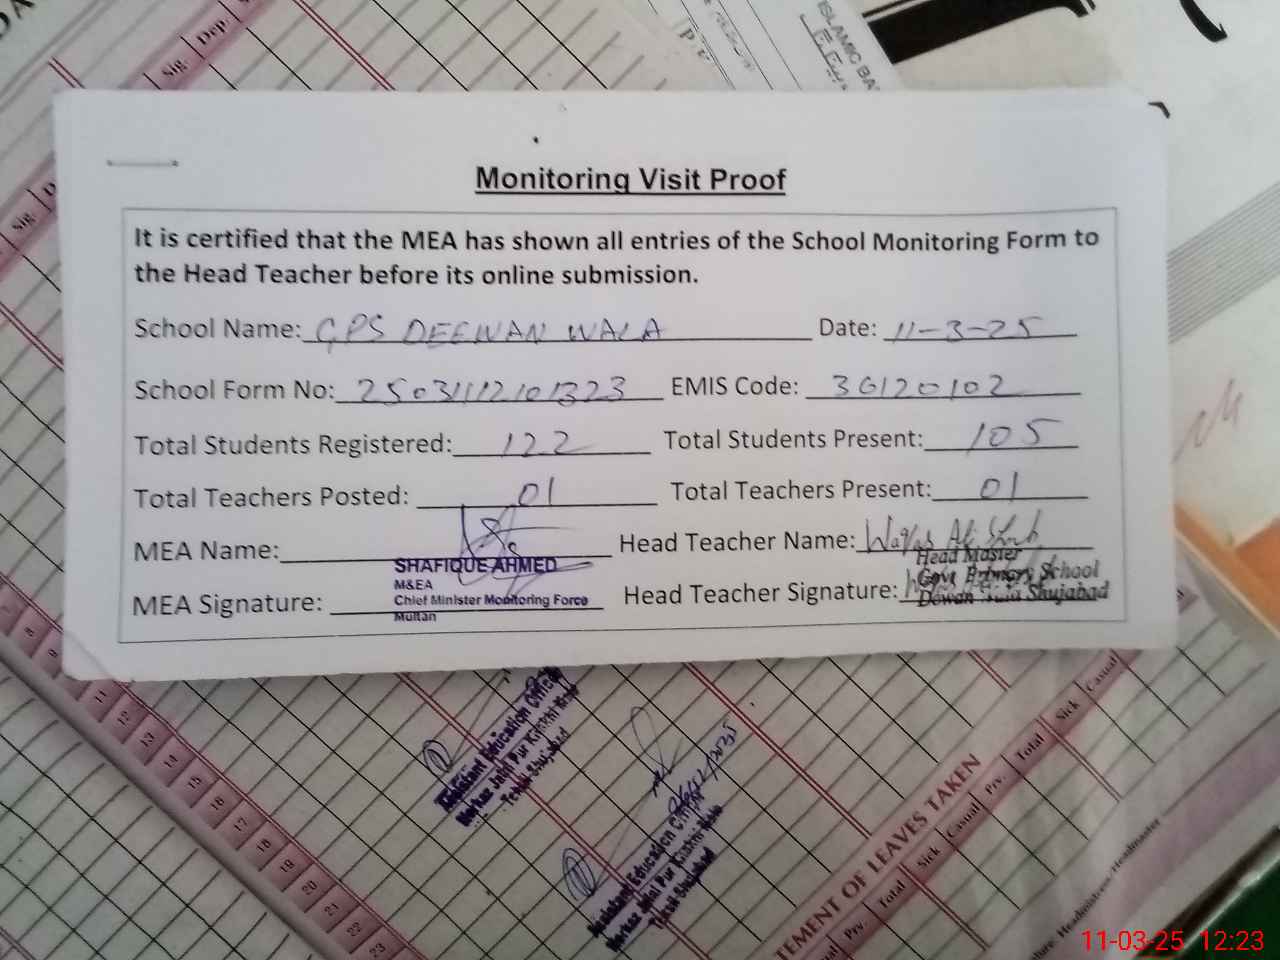 Sig. Dep.
ISLAMIC BA
Sig.
Monitoring Visit Proof
It is certified that the MEA has shown all entries of the School Monitoring Form to
the Head Teacher before its online submission.
School Name: GPS DEEWAN WALA Date: 11-3-25
School Form No: 25031112101323 EMIS Code: 36120102
Total Students Registered: 122 Total Students Present: 105
Total Teachers Posted: 01 Total Teachers Present: 01
MEA Name: Head Teacher Name: Waqas Ali
SHAFIQUE AHMED
M&EA
Chief Minister Monitoring Force
Multan
MEA Signature: Head Teacher Signature:
Head Master
Govt Primary School
Shujabad
8
9
11
12
13
14
15
16
17
18
19
20
21
22
23
Assistant Education Officer
Markaz Jalal Pur
Tehsil Shujabad
Assistant Education Officer
Markaz Jalal Pur
Tehsil Shujabad
TEMENT OF LEAVES TAKEN
Prv. Total Sick Casual Prv. Total Sick Casual
Headmistress/Headmaster
11-03-25 12:23